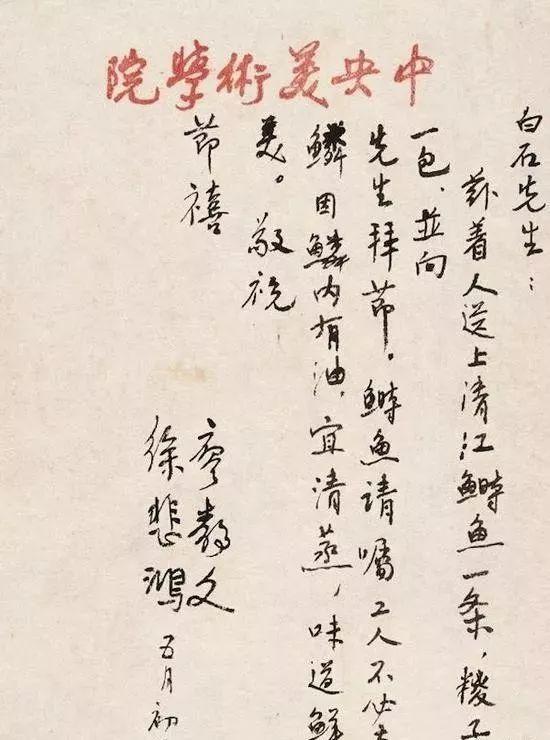 中央美術學院
白石先生：
兹着人送上清江鰣魚一条，糉子
一包，並向
先生拜節。鰣魚請嘱工人不必去
鱗因鱗内有油，宜清蒸，味道鮮
美。敬祝
節禧
廖静文
徐悲鴻 五月初